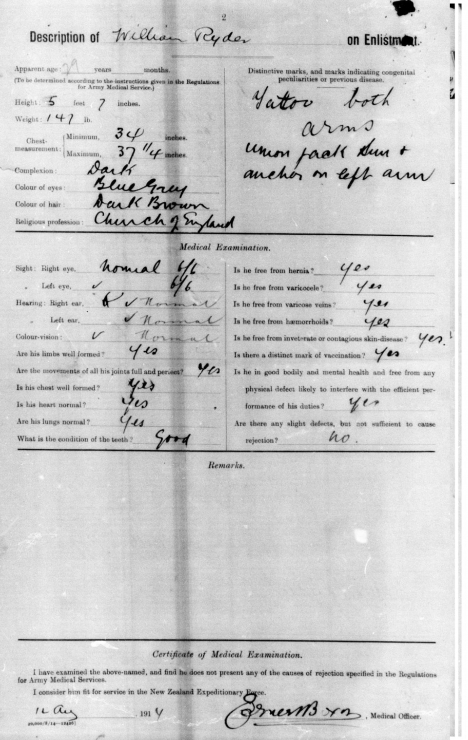 2
Description of William Ryder on Enlistment.
Apparent age 29 years months.
(To be determined according to the instructions given in the Regulations
for Army Medical Service.)
Height: 5 feet 7 inches.
Weight: 147 lb.
Chest-measurement: Minimum, 34 inches.
Maximum, 37 1/4 inches.
Complexion: Dark
Colour of eyes: Blue Grey
Colour of hair: Dark Brown
Religious profession: Church of England
Distinctive marks, and marks indicating congenital
peculiarities or previous disease.
Tatoo both
arms
union jack &
anchor on left arm
Medical Examination.
Sight: Right eye, Normal 6/6
„ Left eye, ✓ 6/6
Hearing: Right ear, ✓ Normal
„ Left ear, ✓ Normal
Colour-vision: ✓ Normal
Are his limbs well formed? Yes
Are the movements of all his joints full and perfect? Yes
Is his chest well formed? Yes
Is his heart normal? Yes
Are his lungs normal? Yes
What is the condition of the teeth? Good
Is he free from hernia? Yes
Is he free from varicocele? Yes
Is he free from varicose veins? Yes
Is he free from hæmorrhoids? Yes
Is he free from invet-rate or contagious skin-disease? Yes.
Is there a distinct mark of vaccination? Yes
Is he in good bodily and mental health and free from any
physical defect likely to interfere with the efficient per-
formance of his duties? Yes
Are there any slight defects, but not sufficient to cause
rejection? No.
Remarks.
Certificate of Medical Examination.
I have examined the above-named, and find he does not present any of the causes of rejection specified in the Regulations
for Army Medical Services.
I consider him fit for service in the New Zealand Expeditionary Force.
12 Aug , 1914 , Medical Officer.